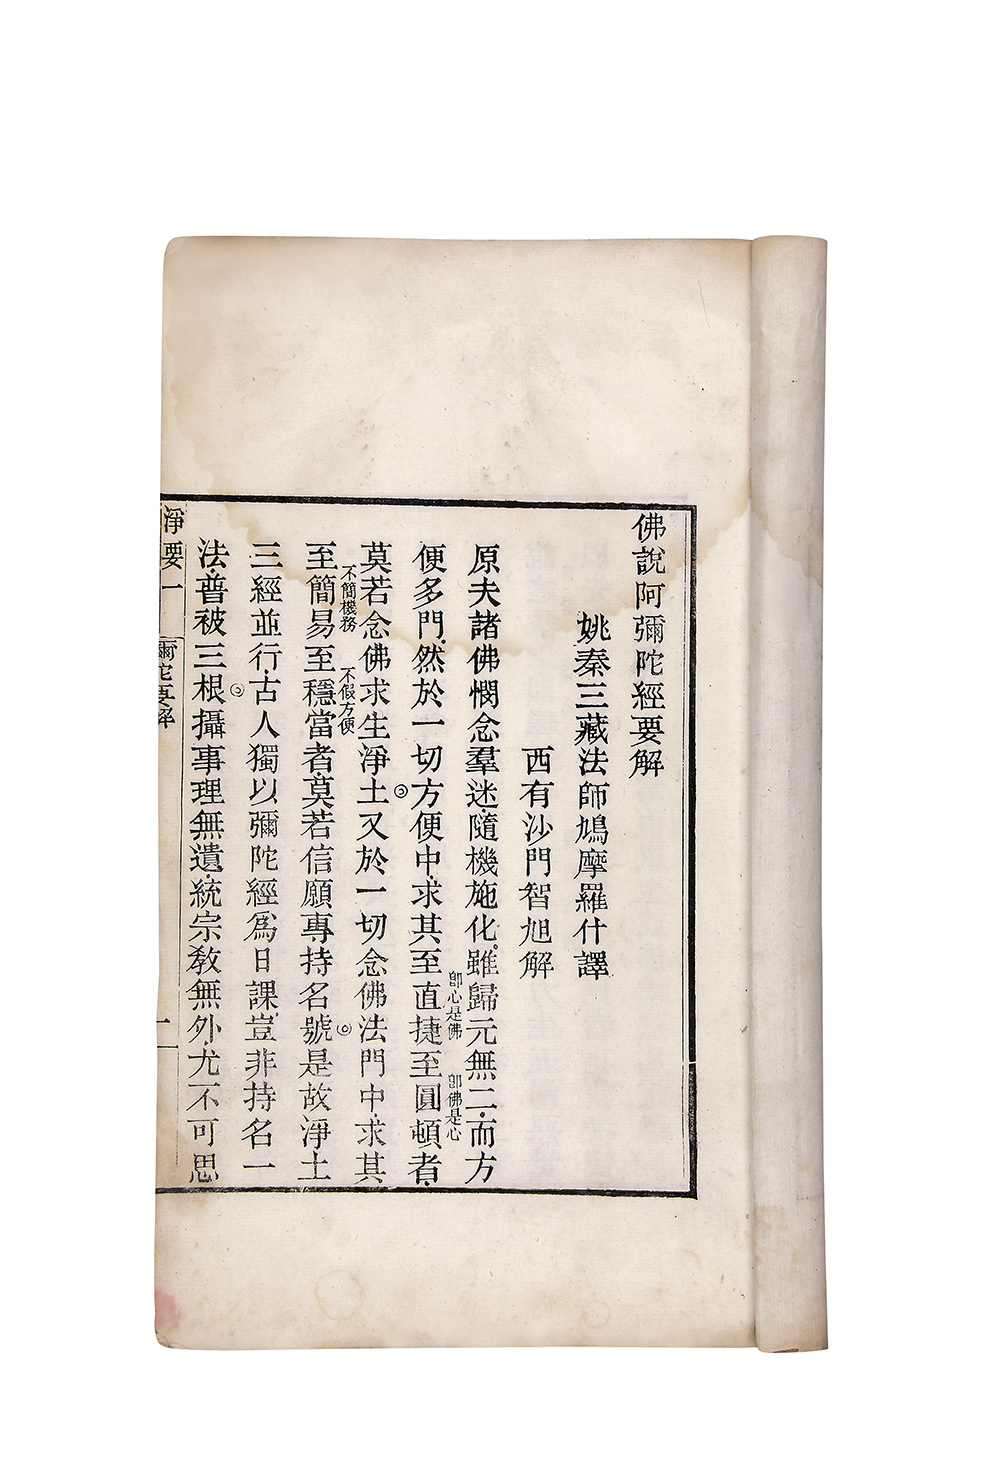 佛說阿彌陀經要解
姚秦三藏法師鳩摩羅什譯
西有沙門智旭解
原夫諸佛憫念羣迷.隨機施化.雖歸元無二.而方
即心是佛 即佛是心
便多門.然於一切方便中.求其至直捷至圓頓者.
莫若念佛求生淨土又於一切念佛法門中.求其
不簡機務 不假方便
至簡易至穩當者.莫若信願專持名號是故淨土
三經並行.古人獨以彌陀經爲日課.豈非持名一
法.普被三根攝事理無遺.統宗教無外.尤不可思
淨要一 彌陀要解 一